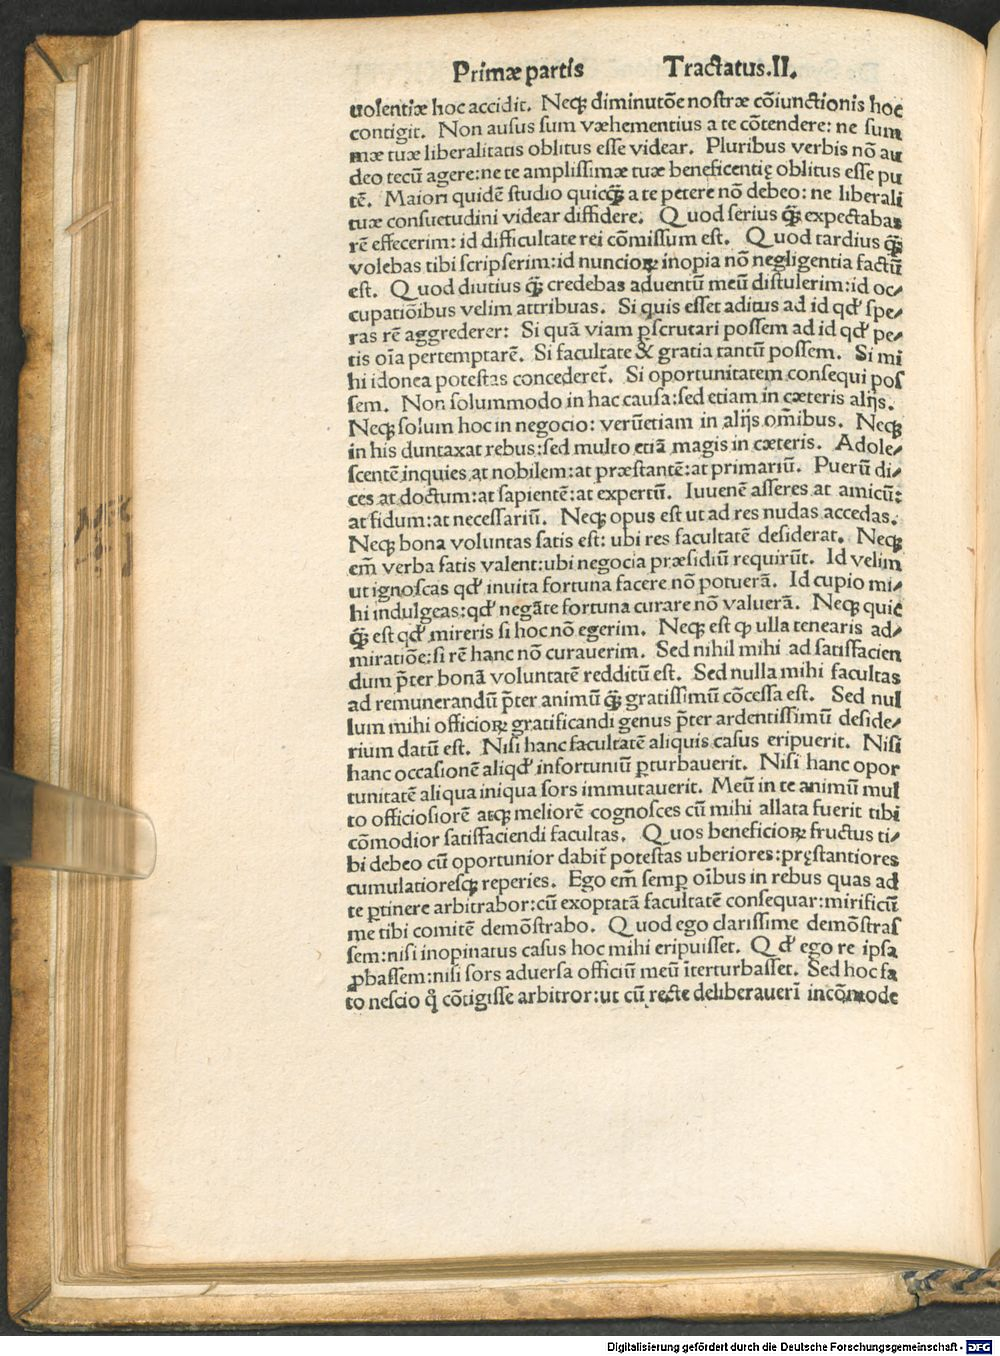 Primæ partis Tractatus.II.
uolentiæ hoc accidit. Neqꝫ diminutōe nostræ cōiunctionis hoc
contigit. Non ausus sum væhementius a te cōtendere: ne sum
mæ tuæ liberalitatis oblitus esse videar. Pluribus verbis nō au
deo tecū agere: ne te amplissimæ tuæ beneficentię oblitus esse pu
tē. Maiori quidē studio quicq̄ꝫ a te petere nō debeo: ne liberali
tuæ consuetudini videar diffidere. Quod serius q̄ꝫ expectabas
rē effecerim: id difficultate rei cōmissum est. Quod tardius q̄ꝫ
volebas tibi scripserim: id nuncioꝝ inopia nō negligentia factū
est. Quod diutius q̄ꝫ credebas aduentū meū distulerim: id oc⸗
cupatiōibus velim attribuas. Si quis esset aditus ad id qď spe⸗
ras rē aggrederer: Si quā viam ꝑscrutari possem ad id qď pe⸗
tis oīa pertemptarē. Si facultate & gratia tantū possem. Si mi
hi idonea potestas concederet̄. Si oportunitatem consequi pos
sem. Non solummodo in hac causa: sed etiam in cæteris alijs.
Neqꝫ solum hoc in negocio: verūetiam in alijs om̄ibus. Neqꝫ
in his duntaxat rebus: sed multo etiā magis in cæteris. Adole⸗
scentē inquies at nobilem: at præstantē: at primariū. Puerū di⸗
ces at doctum: at sapientē: at expertū. Iuuenē asseres at amicū:
at fidum: at necessariū. Neqꝫ opus est ut ad res nudas accedas.
Neqꝫ bona voluntas satis est: ubi res facultatē desiderat. Neqꝫ
em̄ verba satis valent: ubi negocia præsidiū requirūt. Id velim
ut ignoscas qď inuita fortuna facere nō potuerā. Id cupio mi⸗
hi indulgeas: qď negāte fortuna curare nō valuerā. Neqꝫ quic
q̄ꝫ est qď mireris si hoc nō egerim. Neqꝫ est ꝙ ulla tenearis ad⸗
miratiōe: si rē hanc nō curauerim. Sed nihil mihi ad satisfacien
dum p̄ter bonā voluntatē redditū est. Sed nulla mihi facultas
ad remunerandū p̄ter animū q̄ꝫ gratissimū cōcessa est. Sed nul
lum mihi officioꝝ gratificandi genus p̄ter ardentissimū deside⸗
rium datū est. Nisi hanc facultatē aliquis casus eripuerit. Nisi
hanc occasionē aliqď infortuniū ꝑturbauerit. Nisi hanc opor
tunitatē aliqua iniqua sors immutauerit. Meū in te animū mul
to officiosiorē atqꝫ meliorē cognosces cū mihi allata fuerit tibi
cōmodior satisfaciendi facultas. Quos beneficioꝝ fructus ti⸗
bi debeo cū oportunior dabit̄ potestas uberiores: pręstantiores
cumulatioresqꝫ reperies. Ego em̄ semꝑ oībus in rebus quas ad
te ꝑtinere arbitrabor: cū exoptatā facultatē consequar: mirificū
me tibi comitē demōstrabo. Quod ego clarissime demōstras
sem: nisi inopinatus casus hoc mihi eripuisset. Qď ego re ipsa
ꝓbassem: nisi sors aduersa officiū meū īterturbasset. Sed hoc fa
to nescio q̊ cōtigisse arbitror: ut cū recte deliberauerī incōmode
Digitalisierung gefördert durch die Deutsche Forschungsgemeinschaft - DFG